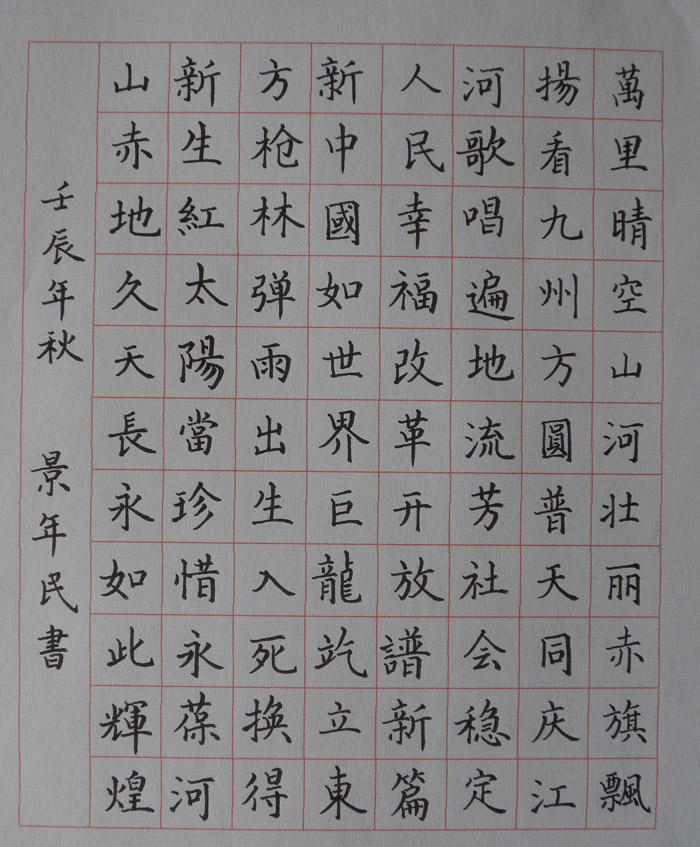 萬里晴空山河壮丽赤旗飄
揚看九州方圓普天同庆江
河歌唱遍地流芳社会穏定
人民幸福改革开放譜新篇
新中國如世界巨龍屹立東
方枪林弹雨出生入死换得
新生紅太陽當珍惜永葆河
山赤地久天長永如此輝煌
壬辰年秋 景年民書